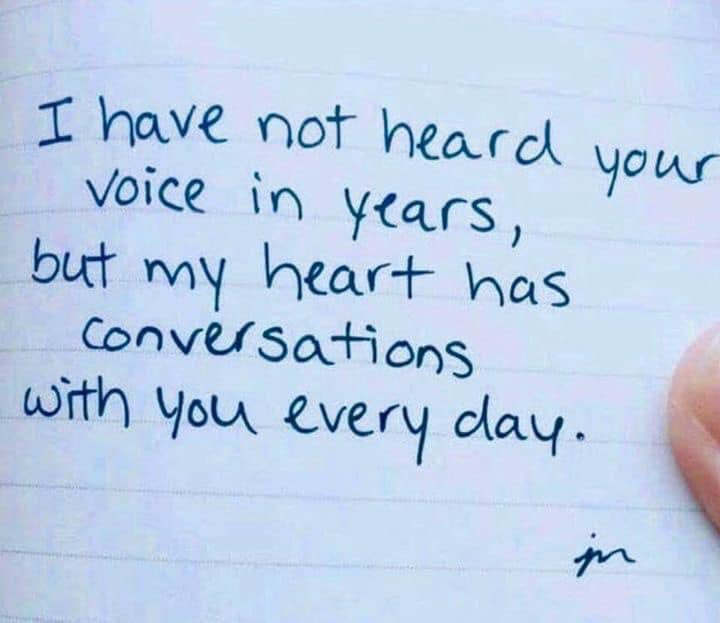 I have not heard your
voice in years,
but my heart has
conversations
with you every day.
jm